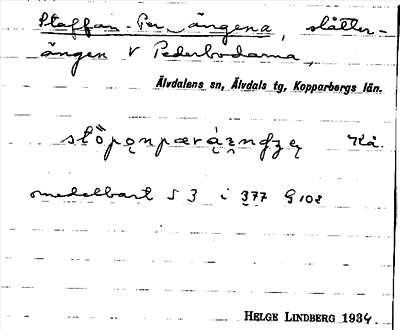 Staffan-Per-ängena, slåtter-
ängen V Pederbodarna,
Älvdalens sn, Älvdals tg, Kopparbergs län.
Kå.
omedelbart S 3 i 377 G 102
HELGE LINDBERG 1934.